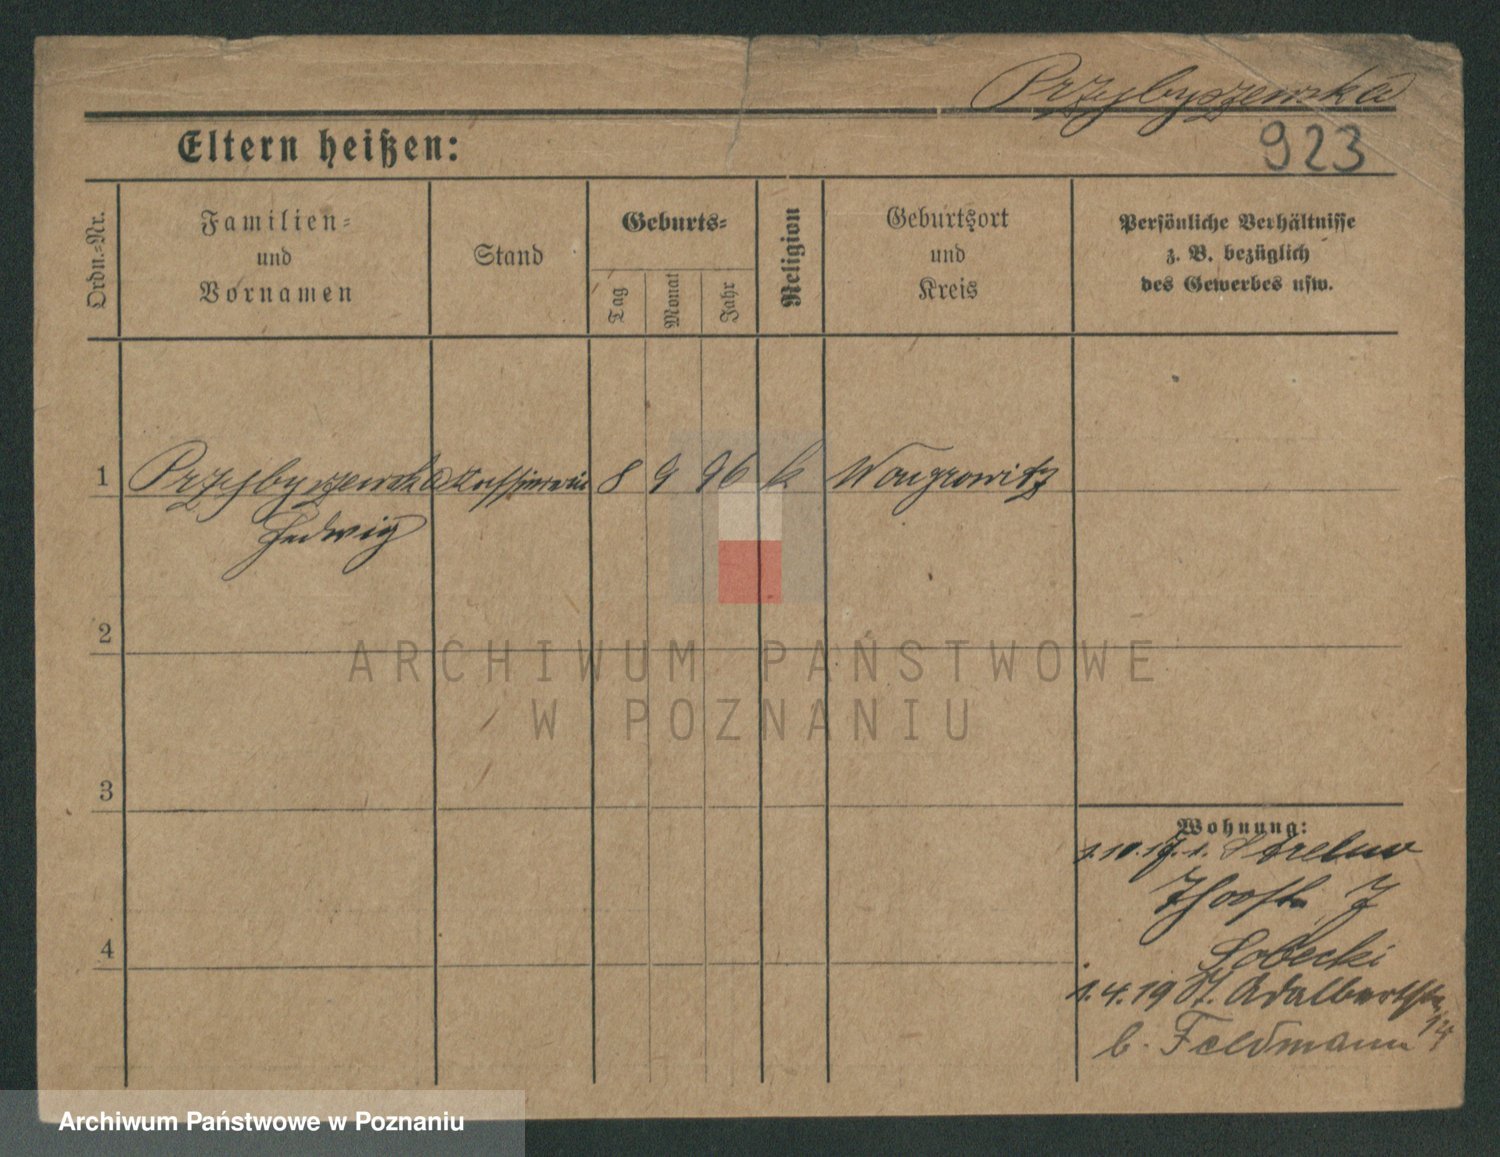 Przybyszewska
923
Eltern heißen:
Ordn.-Nr.
Familien-
und
Vornamen
Stand
Geburts-
Tag
Monat
Jahr
Religion
Geburtsort
und
Kreis
Persönliche Verhältnisse
z. B. bezüglich
des Gewerbes usw.
1 Przybyszewska Kassiererin 8 9 96 k Wongrowitz
Hedwig
2
3
4
Wohnung:
1.10.17. Strelno
Sobecki
1.4.19 St. Adalbertstr.
14
b. Feldmann
ARCHIWUM PAŃSTWOWE
W POZNANIU
Archiwum Państwowe w Poznaniu